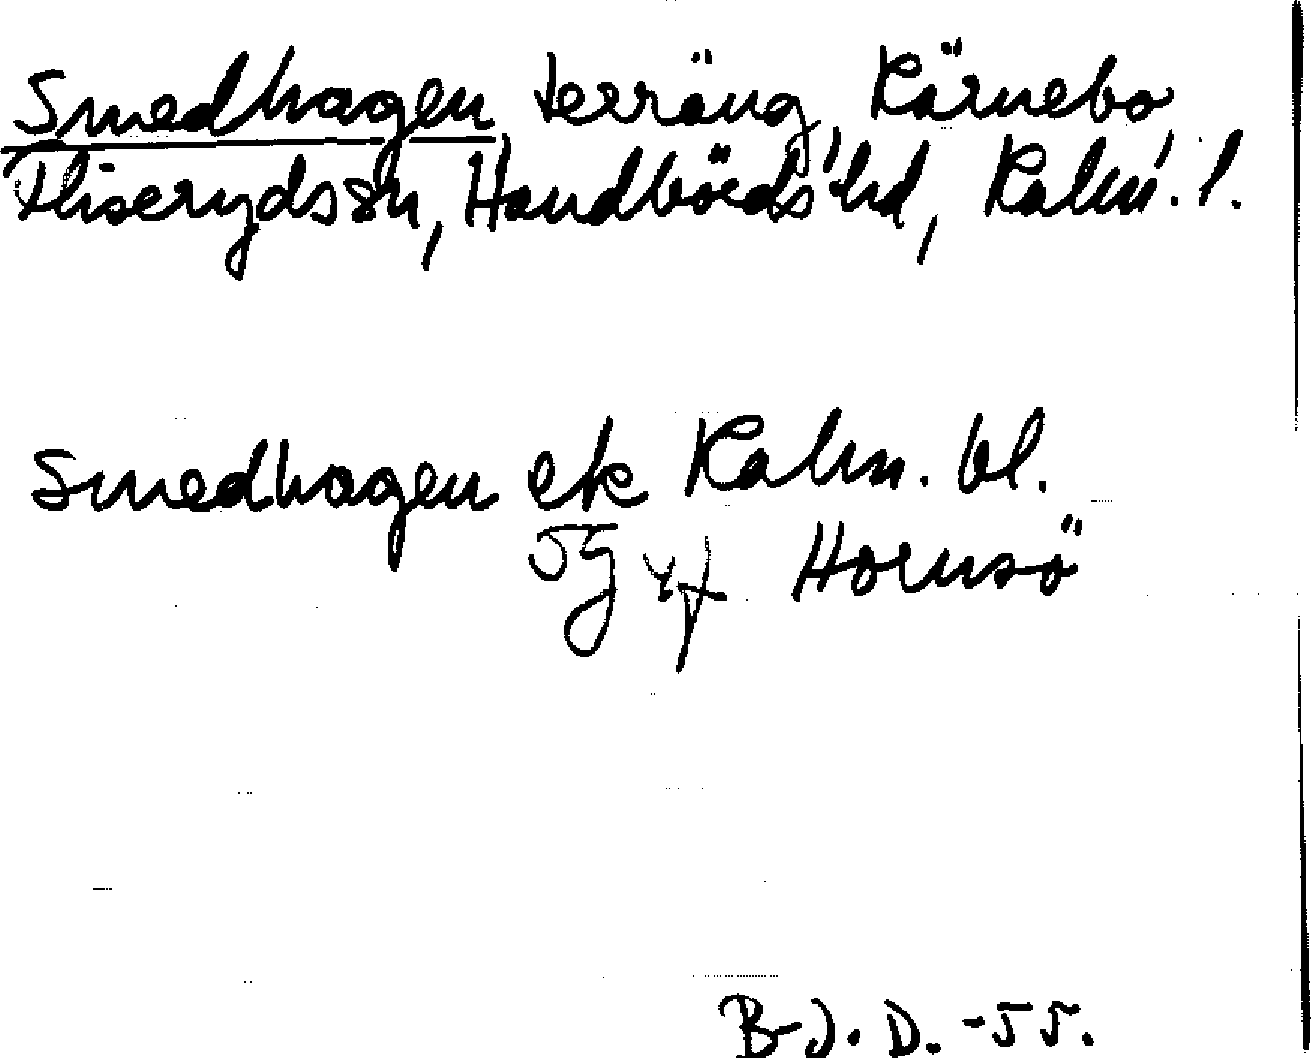 Smedhagen terräng, Kärnebo
Fliseryds sn, Handbörds hd, Kalm. l.
Smedhagen ek Kalm. bl.
5g Hornsö
B-J. D. -55.